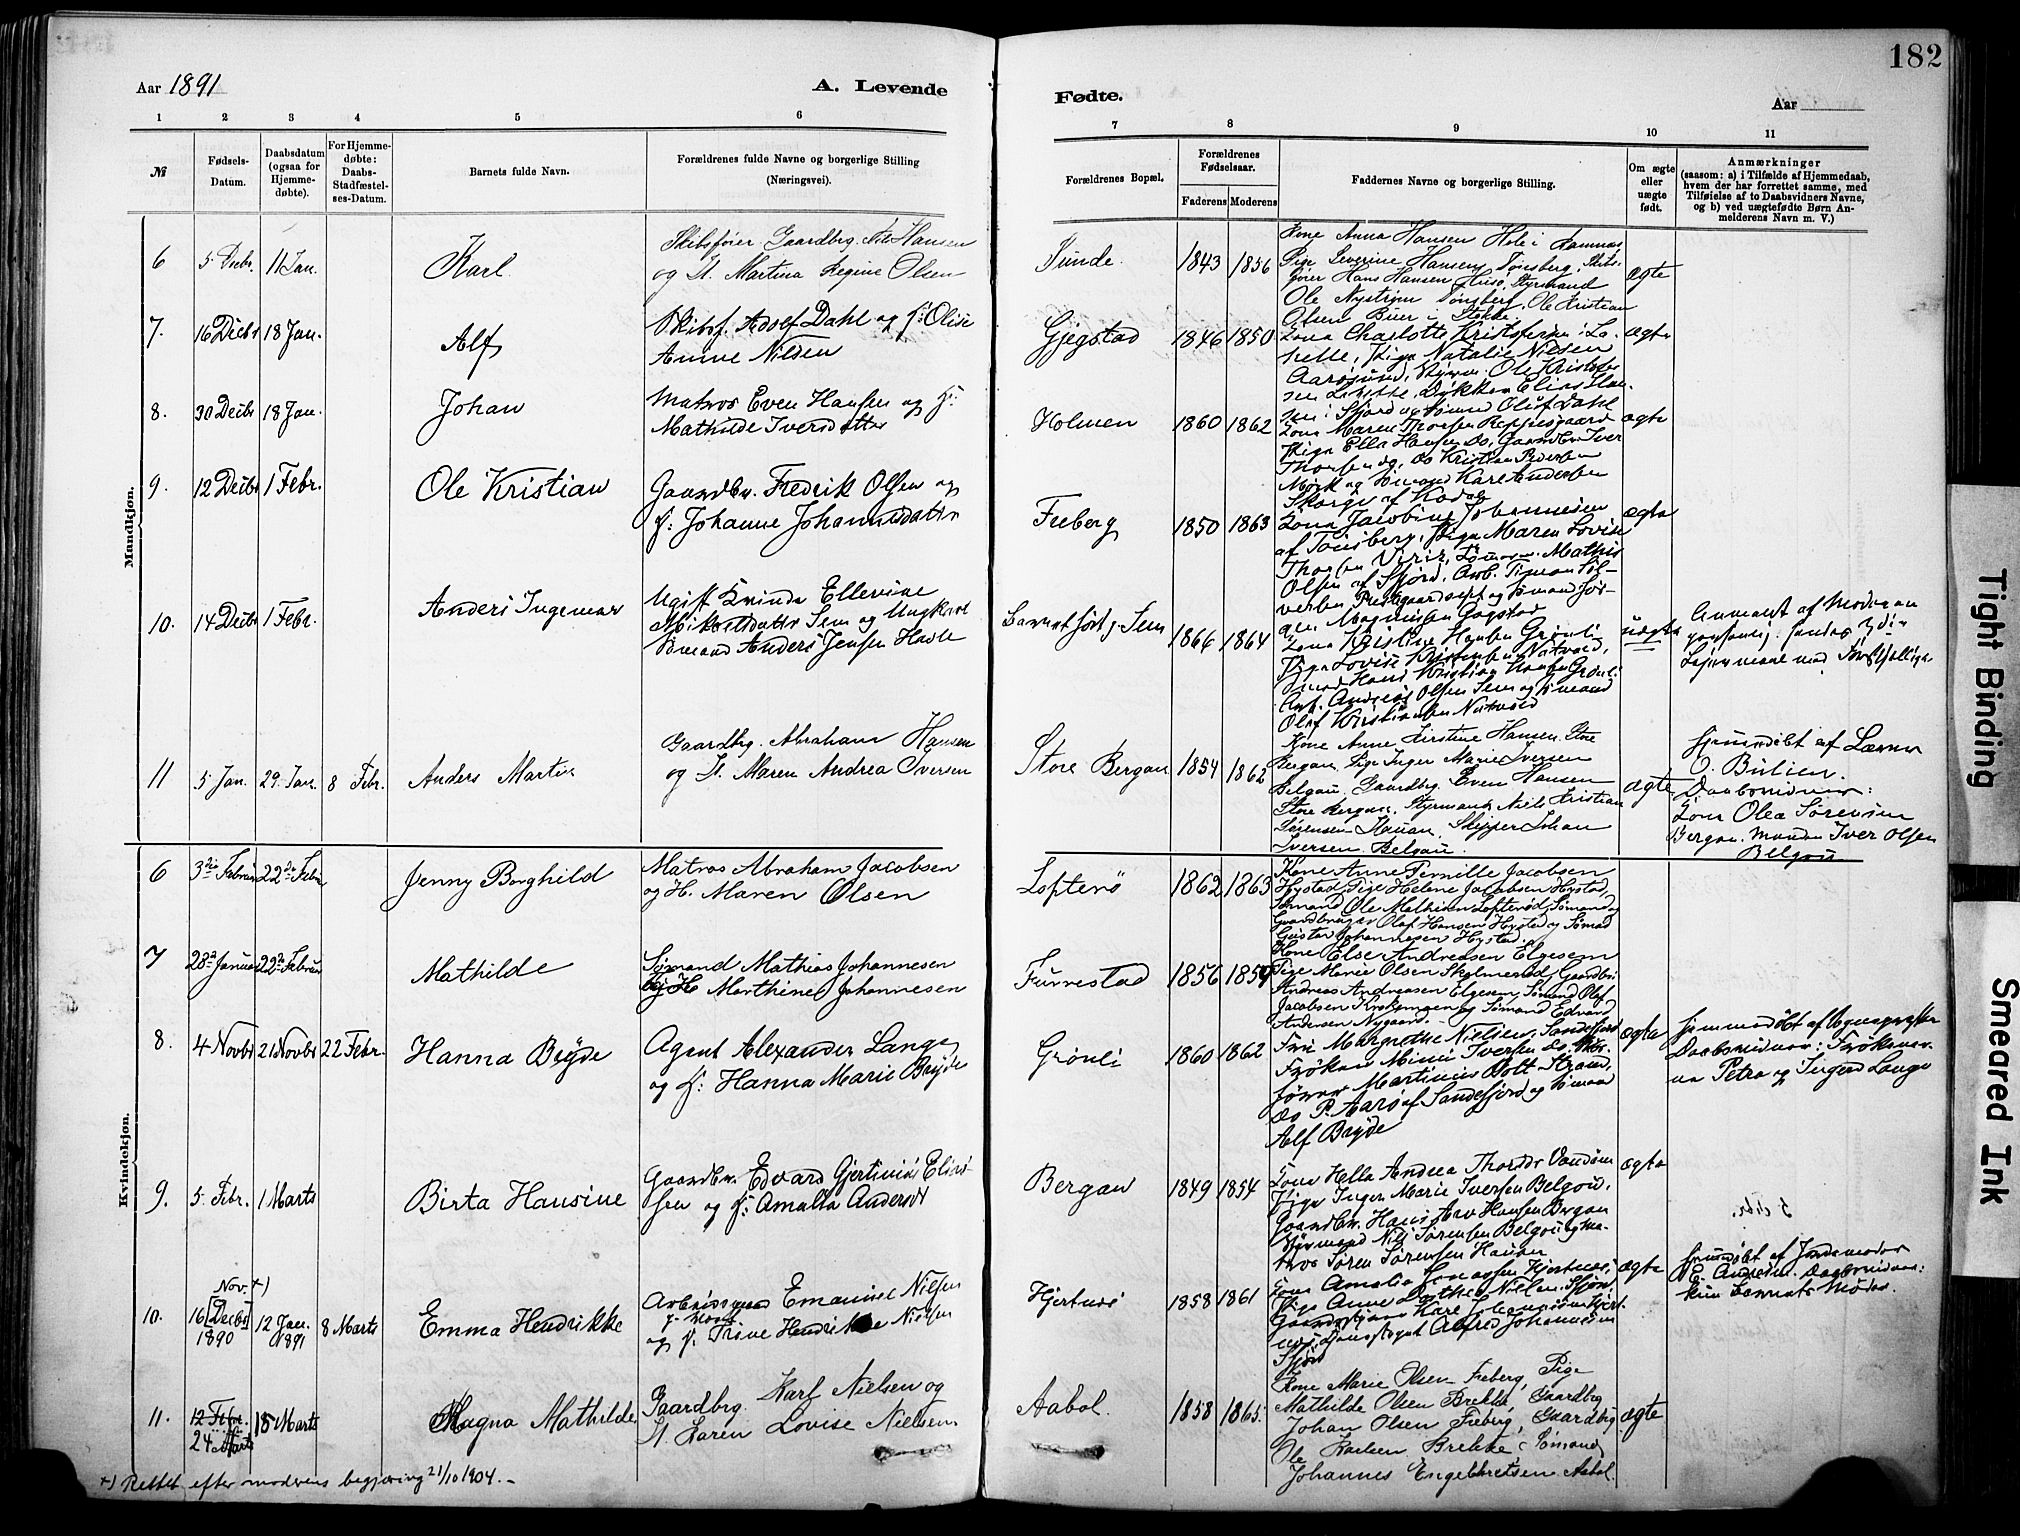 182
Aar 1891
A. Levende
Fødte.
Aar
1 2 3 4 5 6 7 8 9 10 11
№
Fødsels-
Datum.
Daabsdatum
(ogsaa for
Hjemme-
døbte).
For Hjemme-
døbte:
Daabs-
Stadfæstel-
ses-Datum.
Barnets fulde Navn.
Forældrenes fulde Navne og borgerlige Stilling
(Næringsvei).
Forældrenes Bopæl.
Forældrenes
Fødselsaar.
Faderens Moderens
Faddernes Navne og borgerlige Stilling.
Om ægte
eller
uægte
født.
Anmærkninger
(saasom: a) i Tilfælde af Hjemmedaab,
hvem der har forrettet samme, med
Tilføielse af to Daabsvidners Navne,
og b) ved uægtefødte Børn An-
melderens Navn m. V.)
Mandkjøn.
6 5 Decbr. 11 Jan. Karl
Skibsfører Gaardbrg. Nils Hansen
og H. Martina Regine Olsen
Tunde. 1843 1856
Kone Anna Hansen Hole i Ramnæs
Pige Severine Hansen Tønsberg, Skibs-
fører Hans Hansen Husø, Styrmand
Ole Nystrøm Tønsberg, Ole Kristian
Olsen Buer i Stokke
ægte
7. 16 Decbr 18 Jan. Alf
Skibsf. Adolf Dahl og H: Olise
Amine Nilsen
Gjegstad 1846 1850
Kona Charlotte Kristofersen i La-
helle, Piga Natalie Nielsen
Aarøsund, Styrm. Ole Kristofer
ægte
8. 30 Decbr 18 Jan. Johan
Matros Even Hansen og H:
Mathilde Iversdatter
Holmen 1860 1862
Kona Maren Thorsen Preppesgaard
Piga Ella Hansen do, Gaardbr Iver
Thorsen do, do Kristian Pedersen
Mørk og Sømand Kare Andersen
Skorge af Kodal
ægte
9. 12 Decbr 1 Febr. Ole Kristian
Gaardbr. Fredrik Olsen og
H: Johanne Johannesdatter
Freberg 1850 1863
Kona Jacobine Johannesen
af Tønsberg, Piga Maren Lovise
Olsen af Fjord, Arb. Simon Søl-
ægte
10. 14 Decbr 1 Febr. Anders Ingemar
Ugift Kvinde Ellevine
Mikelsdatter Sem og Ungkarl
Sømand Anders Jensen Hasle
Barnet født p. Sem 1866 1864
Kona Kirstine Hansen Grønli
Piga Lovise Kristensen Natvold,
Arb. Andreas Olsen Sem og Sømand
Olaf Kristiansen Natvold
uægte
Anmeldt af Moderen
11 5 Jan. 29 Jan. 8 Febr. Anders Martin
Gaardbrg. Abraham Hansen
og H. Maren Andrea Iversen
Store Bergan 1854 1862
Kone Anne Kirstine Hansen Store
Bergan, Pige Inger Marie Iversen
Belgau, Gaardbrg. Even Hansen
Store Bergan, Styrmand Niels Kristian
Sørensen Hauan, Skipper Johan
Iversen Belgau.
ægte
Hjemmedøbt af Lærer
O. Bulien.
Daabsvidner:
Kona Olea Sørensen
Bergan. Mand Iver Olsen
Belgau
Kvindekjøn.
6 3die Februar 22de Febr Jenny Borghild
Matros Abraham Jacobsen
og H. Maren Olsen
Lofterø 1862 1863
Kone Anne Pernille Jacobsen
Hystad, Pige Helene Jacobsen Hystad,
Sømand Ole Mathisen Lofterød, Sømand og
Gaardbruger Olaf Hansen Hystad og Sømand
Gustav Johannesen Hystad.
7 28de Januar 22de Februar Mathilde
Sømand Mathias Johannesen
og H. Marthine Johannesen
Furrestad 1856 1859
Kone Else Andreasen Elgesem
Pige Marie Olsen Skolmerød, Gaardbr.
Andreas Andreasen Elgesem, Sømand Olaf
Jacobsen Krokemoen og Sømand Edvard
Andersen Nygaard.
8. 4 Novbr 21 Novbr 22 Febr. Hanna Bryde
Agent Alexander Lange
og H: Hanna Marie Bryde
Grønli 1860 1862
Fru Margrethe Nielsen, Sandefjord
Frøken Mimi Iversen do, Skibs-
fører Martinius Bolt Strand,
do P. Aarø af Sandefjord og Sømand
Alf Bryde
ægte
Hjemmedøbt af Sognepresten
Daabsvidner: Frøkner-
ne Petra og Inger Lange
9. 5. Febr. 1 Marts Birta Hansine
Gaardbr. Edvard Gjertinius Elias-
sen og H: Amalia Andersdt
Bergan 1849 1854
Kona Hella Andrea Thordsr Vandsen
Piga Inger Marie Iversen Belgau,
Gaardbr. Hans Arv Hansen Bergan
Styrmand Nils Sørensen Belgau og Ma-
tros Søren Sørensen Hauan
ægte
10. Nov. +)
16 [Decbr]
1890
12 Jan.
1891
8 Marts Emma Hendrikke
Arbeidsmand Emanuel Nilsen
og H. Trine Hendrikke Nilsen
Hjertnes 1858 1861
Kona Amalia Jonassen Hjertnes,
Piga Anne Dorthea Nielsen Fjord,
ægte
Hjemmedøbt af Jordemoder
E. Andersen. Daabsvidner:
kun Barnets Moder.
11. 12 Febr.
24 Marts
15 Marts Magna Mathilde
Gaardbrg. Karl Nielsen og
H. Karen Lovise Nielsen
Aabol. 1858 1865.
Kone Marie Olsen Freberg, Pige
Mathilde Olsen Brekke, Gaardbrg
Johan Olsen Freberg, Gaardbrg
Ole Karlsen Brekke, Sømand
Johannes Engebbretsen Aabol.
ægte
+) Rettet efter moderens begjæring 21/10 1904. -
Tight Binding
Smeared Ink